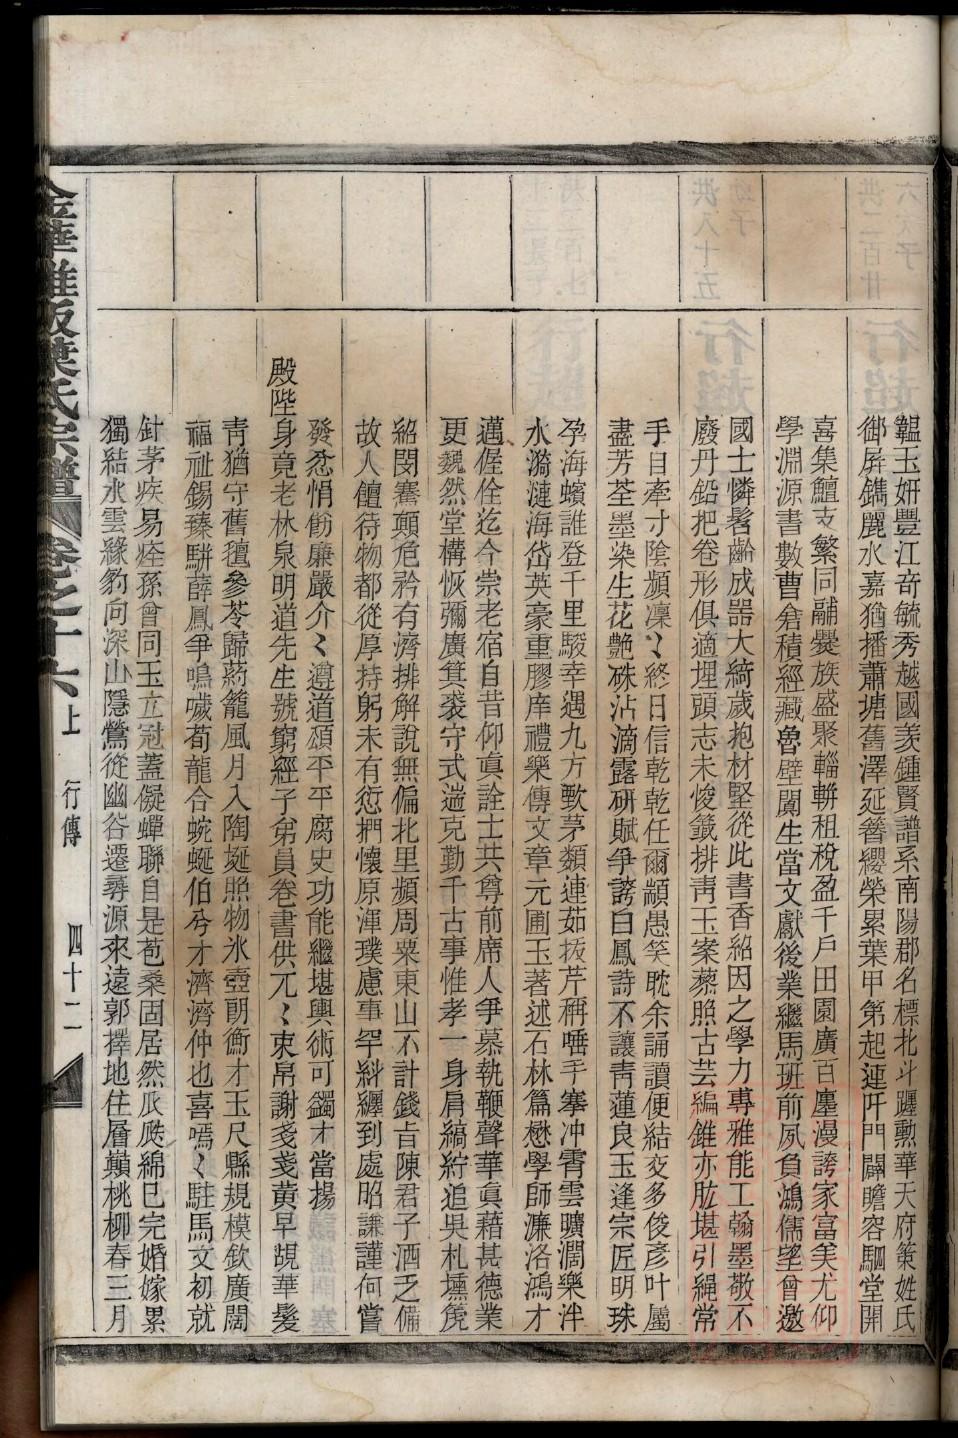 韞玉妍豐江奇毓秀越國羨鍾賢譜系南陽郡名標北斗躔勳華天府策姓氏
御屏鐫麗水嘉猶播蕭塘舊澤延簪纓榮累葉甲第起連阡門闢瞻容駟堂開
喜集鱣支繁同黼爨族盛聚輜軿租稅盈千戶田園廣百廛漫誇家富美尤仰
學淵源書數曹倉積經藏魯壁闐生當文獻後業繼馬班前夙負鴻儒望曾邀
國士憐髫齡成器大綺歲抱材堅從此書香紹因之學力專雅能工翰墨敬不
廢丹鉛把卷形俱適埋頭志未悛籤排靑玉案藜照古芸編錐亦肱堪引繩常
手自牽寸陰頻凜〻終日信乾乾任爾顓愚笑耽余誦讀便結交多俊彥叶屬
盡芳荃墨染生花艷硃沾滴露研賦爭誇白鳳詩不讓靑蓮良玉逢宗匠明珠
孕海蠙誰登千里駿幸遇九方歅茅類連茹拔芹稱唾手搴冲霄雲曠濶樂泮
水漪漣海岱英豪重膠庠禮樂傳文章元圃玉著述石林篇懋學師濂洛鴻才
邁偓佺迄今崇老宿自昔仰眞詮士共尊前席人爭慕執鞭聲華眞藉甚德業
更巍然堂構恢彌廣箕裘守弌遄克勤千古事惟孝一身肩縞紵追吳札壎箎
紹閔騫顚危矜有濟排解說無偏北里頻周粟東山不計錢旨陳君子酒乏備
故人饘待物都從厚持躬未有愆捫懷原渾璞慮事罕紏纒到處昭謙謹何嘗
發忿悁飭廉嚴介〻遵道頌平平腐史功能繼堪輿術可蠲才當揚
殿陛身竟老林泉明道先生號窮經子弟員卷書供兀〻束帛謝戔戔黃早覘華髮
靑猶守舊氊參苓歸葯籠風月入陶埏照物氷壺朗衡才玉尺縣規模欽廣闊
福祉錫臻駢薛鳳爭鳴噦荀龍合蜿蜒伯兮才濟濟仲也喜嘕〻駐馬文初就
針茅疾易痊孫曾同玉立冠蓋儗蟬聯自是苞桑固居然瓜瓞綿已完婚嫁累
獨結水雲緣豹向深山隱鶯從幽谷遷尋源來遠郭擇地住層巔桃柳春三月
金華雅畈葉氏宗譜 卷之十六上 行傳 四十二